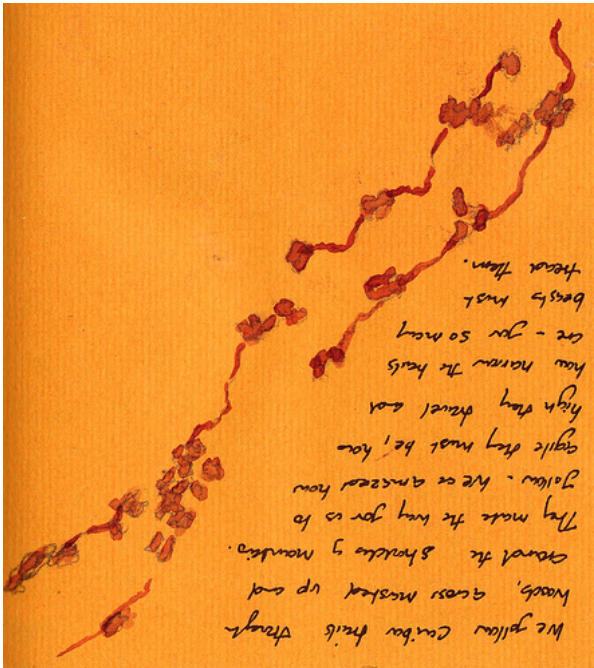 We follow caribou trails through
woods, across muskeg up and
around the shoulders of mountains.
They make the way for us to
follow. We're amazed how
agile they must be, how
high they travel and
how narrow the trails
are - for so many
beasts must
tread them.